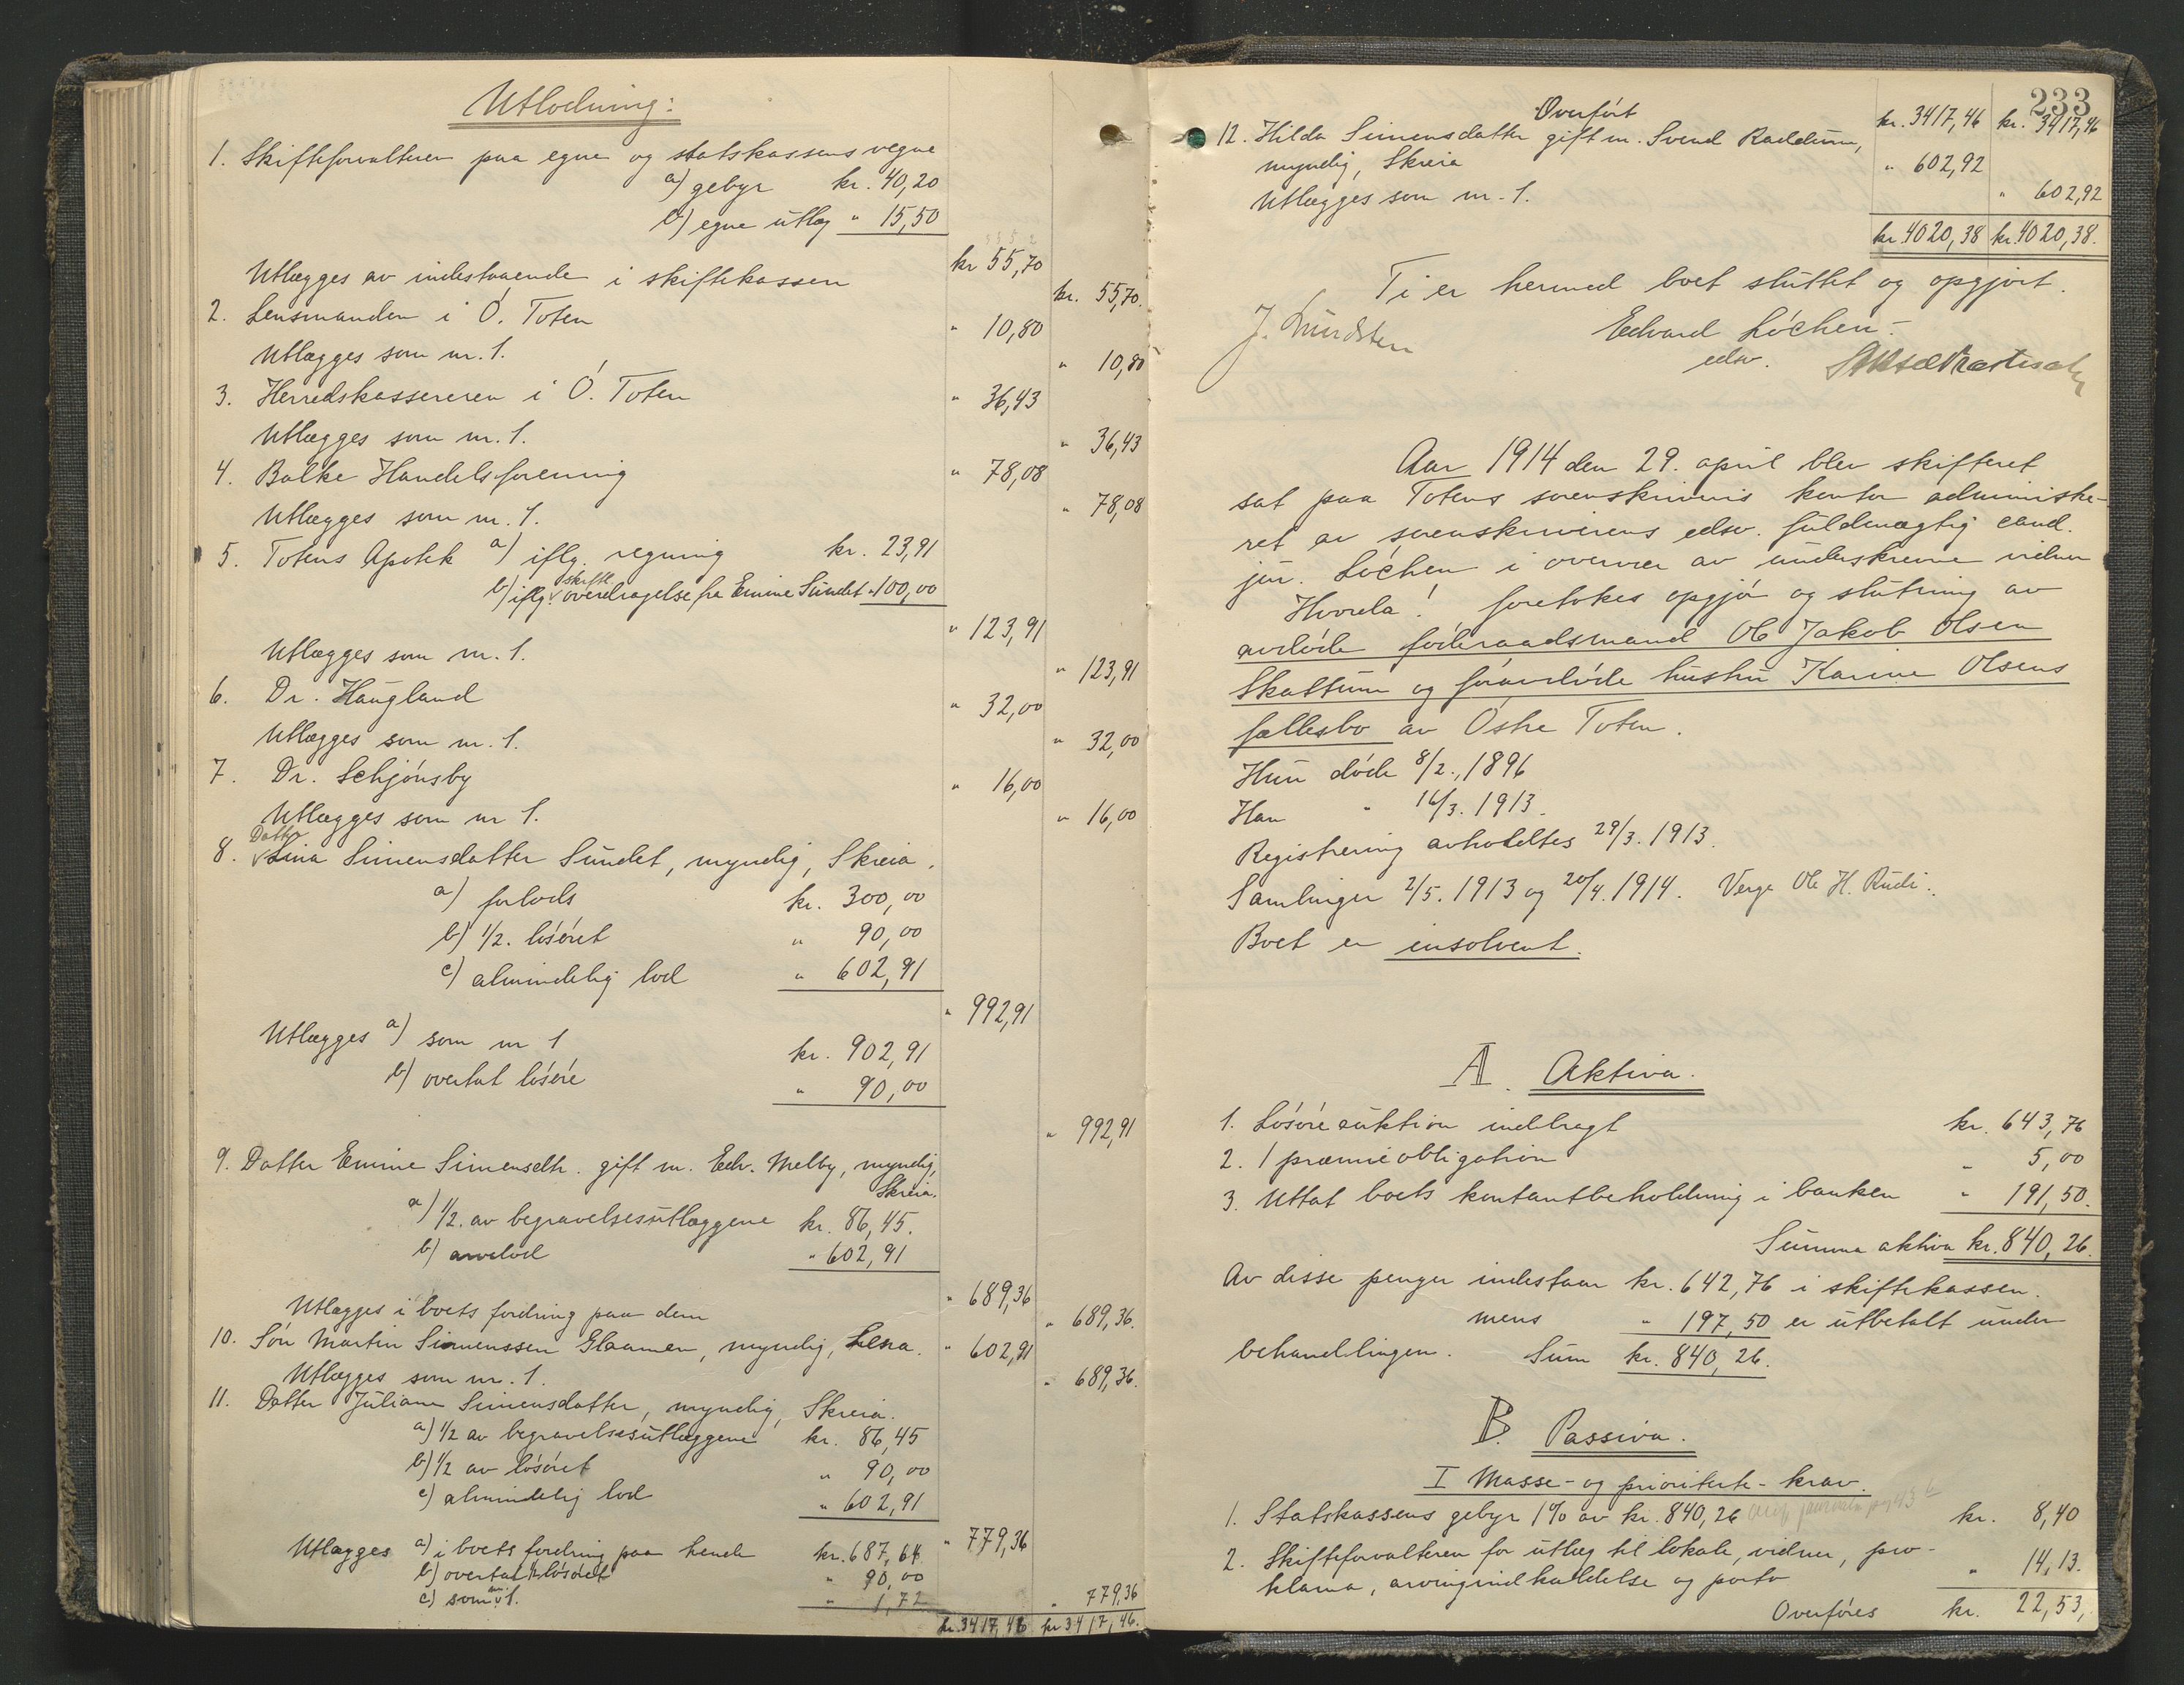 Utlodning:
1. Skifteforvalteren paa egne og statskassens vegne
a) gebyr kr. 40,20
b) egne utlæg " 15,50
kr 55,70
Utlægges av indestaaende i skiftekassen
kr. 55,70.
2. Lensmanden i Ø. Toten " 10,80
Utlægges som nr. 1. " 10,80
3. Herredskassereren i Ø. Toten " 36,43
Utlægges som nr. 1. " 36,43
4. Balke Handelsforening " 78,08
Utlægges som nr. 1. " 78,08
5. Totens Apotek a) iflg. regning kr. 23,91
b) iflg. skiftl. overdragelse fra Emine Sundet " 100,00
" 123,91
Utlægges som nr. 1. " 123,91
6. Dr. Haugland " 32,00
Utlægges som nr. 1. " 32,00
7. Dr. Schjønsby " 16,00
Utlægges som nr 1. " 16,00
8. Datter Lina Simensdatter Sundet, myndig, Skreia.
a) forlods kr. 300,00
b) 1/2. løsøret " 90,00
c) almindelig lod " 602,91
" 992,91
Utlægges a) som nr 1 kr. 902,91
b) overtat løsøre " 90,00
" 992,91
9. Datter Emine Simensdtr. gift m. Edv. Melby, myndig,
Skreia.
a) 1/2. av begravelsesutlæggene kr. 86,45.
b) arvelod " 602,91
" 689,36
Utlægges i boets fordring paa dem " 689,36.
10. Søn Martin Simenssen Glaamen, myndig, Lena. " 602,91
Utlægges som nr. 1. " 689,36.
11. Datter Juliane Simensdatter, myndig, Skreia.
a) 1/2 av begravelsesutlæggene kr. 86,45
b) 1/2 av løsøret " 90,00
c) almindelig lod " 602,91
" 779,36
Utlægges a) i boets fordring paa hende kr. 687,64
b) overtat 1/2 løsøret " 90,00
c) som nr. 1. " 1,72
" 779,36
kr. 3417,46 kr 3417,46.
233
Overført kr. 3417,46 kr. 3417,46
12. Hilda Simensdatter gift m. Svend Raddum,
myndig, Skreia " 602,92
Utlægges som nr. 1. " 602,92
kr. 4020,38 kr. 4020,38.
Ti er hermed boet sluttet og opgjort.
J. Lundsten Edvard Løchen
edsv.
Aar 1914 den 29. april blev skifteret
sat paa Totens sorenskriveris kontor administre-
ret av sorenskriverens edsv. fuldmægtig cand.
jur. Løchen i overvær av underskrevne vidner
Hvorda! foretokes opgjør og slutning av
avdøde føderaadsmand Ole Jakob Olsen
Skattum og foravdøde hustru Karine Olsens
fællesbo av Østre Toten.
Hun døde 8/2., 1896
Han " 16/3. 1913.
Registrering avholdtes 29/3. 1913.
Samlinger 2/5. 1913 og 20/4. 1914. Verge Ole H. Rudi.
Boet er insolvent.
A. Aktiva.
1. Løsøreauktion indbragt kr. 643,76
2. 1 præmieobligation " 5,00
3. Uttat boets kontantbeholdning i banken " 191,50.
Summa aktiva kr. 840,26.
Av disse penger indestaar kr. 642,76 i skiftekassen.
mens " 197,50 er utbetalt under
behandlingen. Sum kr. 840,26.
B. Passiva.
I Masse- og prioritets-krav.
1. Statskassens gebyr 1% av kr. 840,26 kr. 8,40
2. Skifteforvalteren for utlæg til lokale, vidner, pro-
klama, arvingindkaldelse og porto " 14,13.
Overføres kr. 22,53,